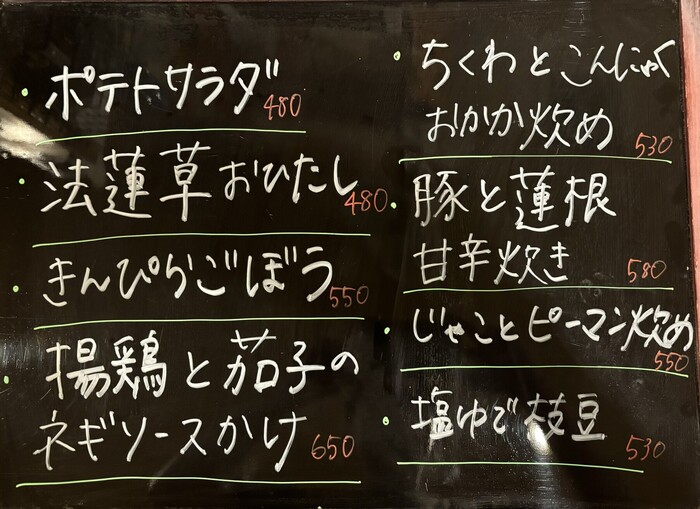 ・ポテトサラダ 480
・法蓮草おひたし 480
・きんぴらごぼう 550
・揚鶏と茄子の
ネギソースかけ 650
・ちくわとこんにゃく
おかか炊め 530
・豚と蓮根
甘辛炊き 580
・じゃことピーマン炊め
550
・塩ゆで枝豆 530